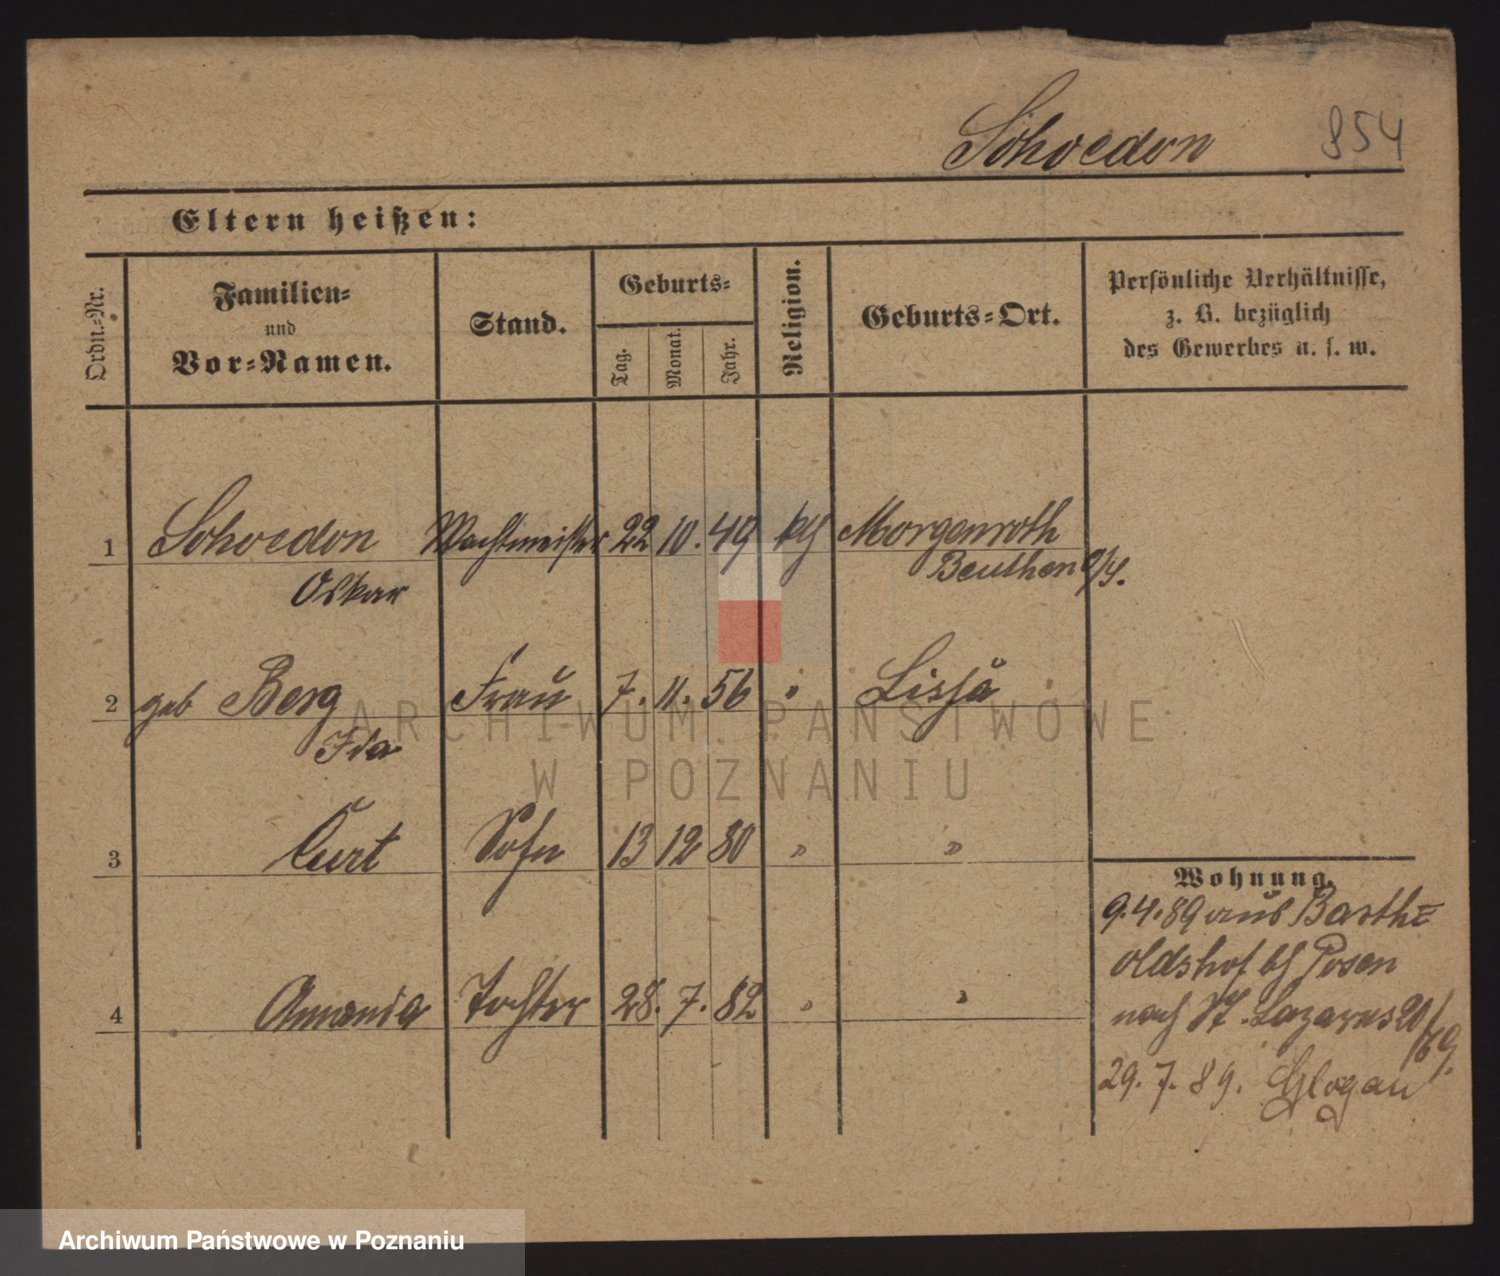 Schvedon
854
Eltern heißen:
Ordn.=Nr.
Familien=
und
Vor=Namen.
Stand.
Geburts=
Tag.
Monat.
Jahr.
Religion.
Geburts=Ort.
Persönliche Verhältnisse,
z. B. bezüglich
des Gewerbes u. s. w.
1 Schvedon Wachtmeister 22 10. 49 kth Morgenroth
Oskar Beuthen O/S.
2 geb Berg Frau 7. 11. 56 " Lissa
Ida
3 Curt Sohn 13 12 80 " "
4 Amanda Tochter 28. 7. 82 " "
Wohnung.
9.4.89 aus Barth=
oldshof bei Posen
nach St. Lazarus 20/
29. 7. 89. Glogau
ARCHIWUM PAŃSTWOWE
W POZNANIU
Archiwum Państwowe w Poznaniu